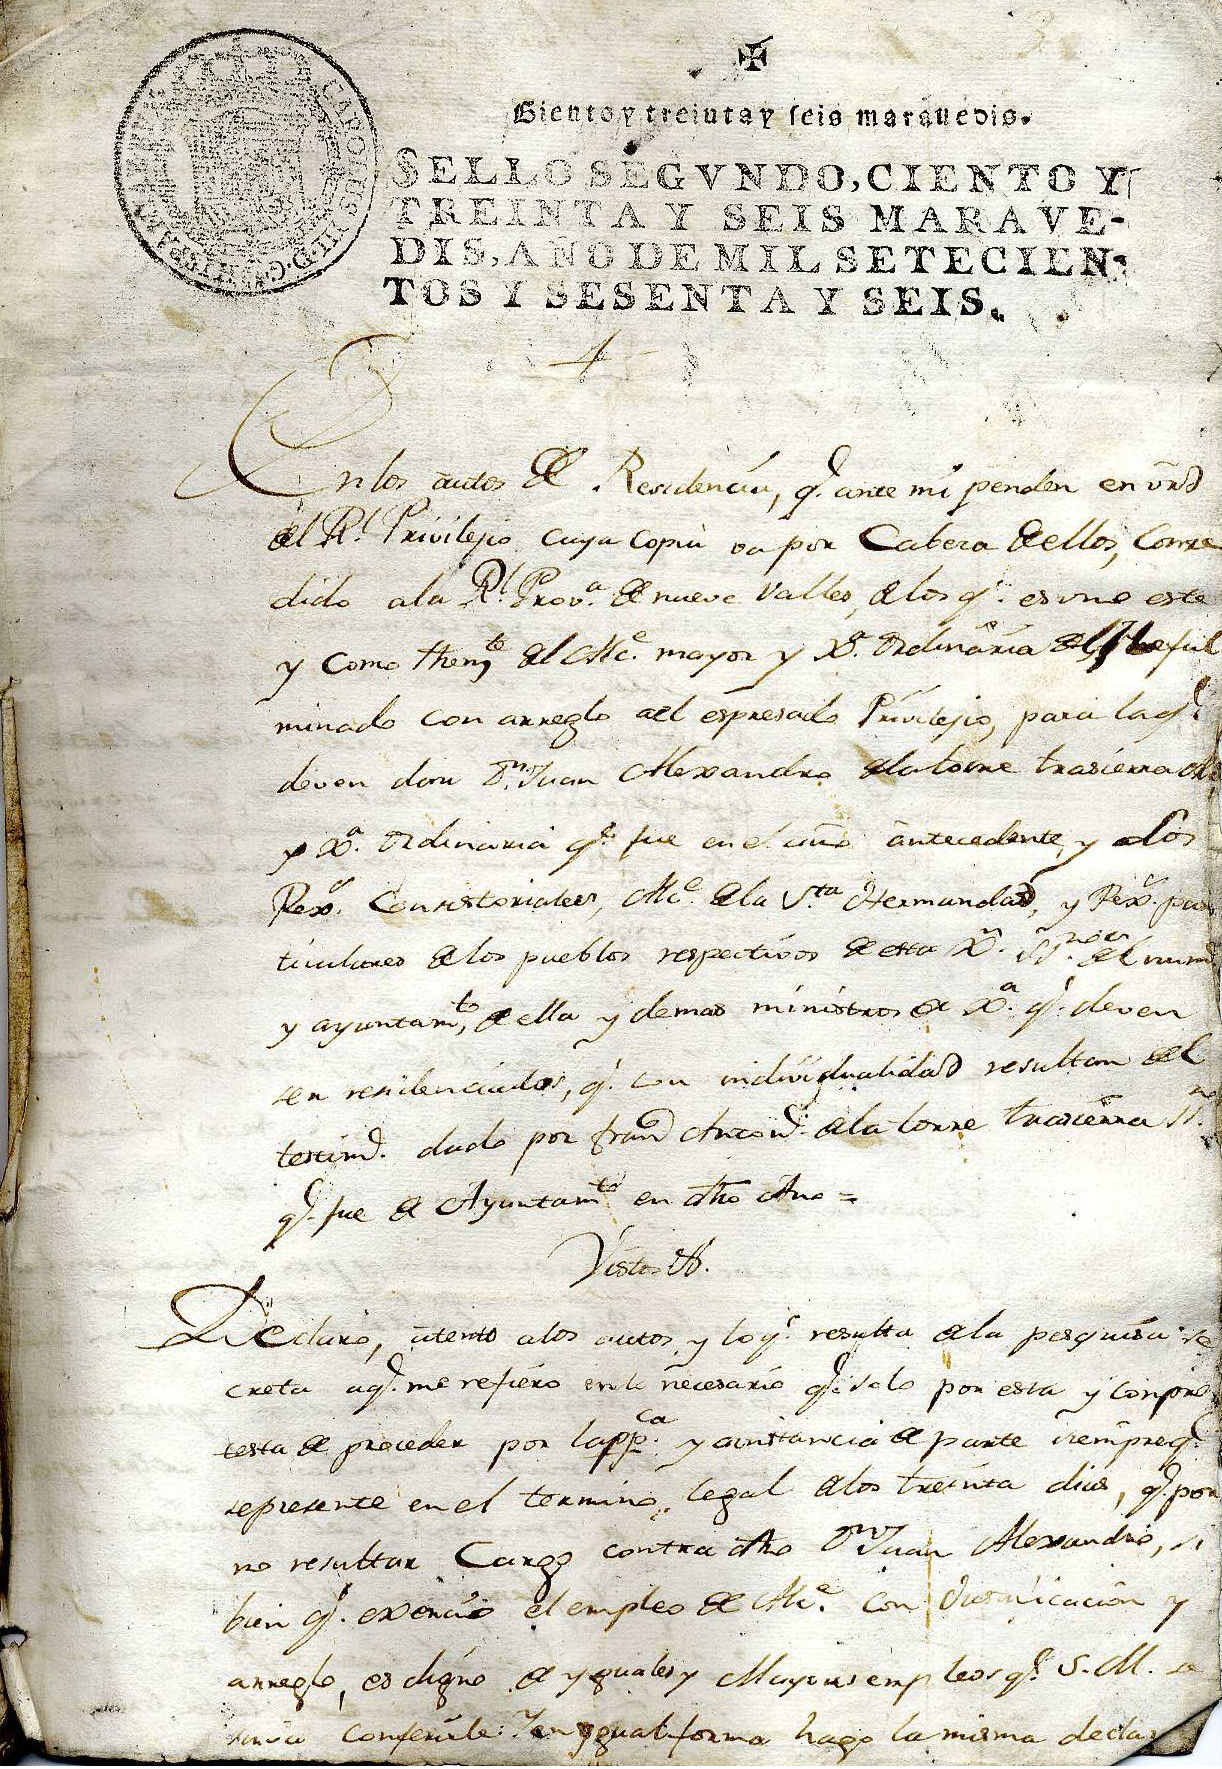 CAROLUS III D G
Ciento y treinta y seis maravedis.
SELLO SEGVNDO, CIENTO Y
TREINTA Y SEIS MARAVE-
DIS, AÑO DE MIL SETECIEN-
TOS Y SESENTA Y SEIS.
En los autos de Residencia, q.e ante mi penden en
del R.l Privilejio cuya copia va por Cabeza de ellos, Conze
dido a la R.l Prov.a de nueve Valles, de los q.e es uno este
y como then.te del Alc.e mayor y X.a Ordinaria del
minado con arreglo a el espresado Privilejio, para la q.e
deven dar D.n Juan Alexandro de la torre trasierra
y X.a Ordinaria q.e fue en el año antecedente, y a los
Rex.s Consistoriales, Alc.e de la S.ta Hermandad, y Rex.s par
ticulares de los pueblos respectivos de esta X.n SS.nos del num.
y ayuntam.to, de ella y demas ministros de X.a q.e deven
ser residenciados, q.e con individualidad resultan del
testim.o dado por Fran.co Anton.o de la torre trasierra SS.no
q.e fue de Ayuntam.to en dho Año =
Vistos &.
Declaro, atento a los autos, y lo q.e resulta de la pesquisa se
creta a q.e me refiero en lo necesario q.e solo por esta y con pro
testa de proceder por la pp.ca y a instancia de parte siempre q.e
se presente en el termino legal de los treinta dias, q.e por
no resultar Cargo contra dho D.n Juan Alexandro, si
bien q.e exercio el empleo de Alc.e con Justificacion y
arreglo, es digno de yguales y Mayores empleos q.e S. M. se
sirva conferirle: Y en ygual forma hago la misma decla